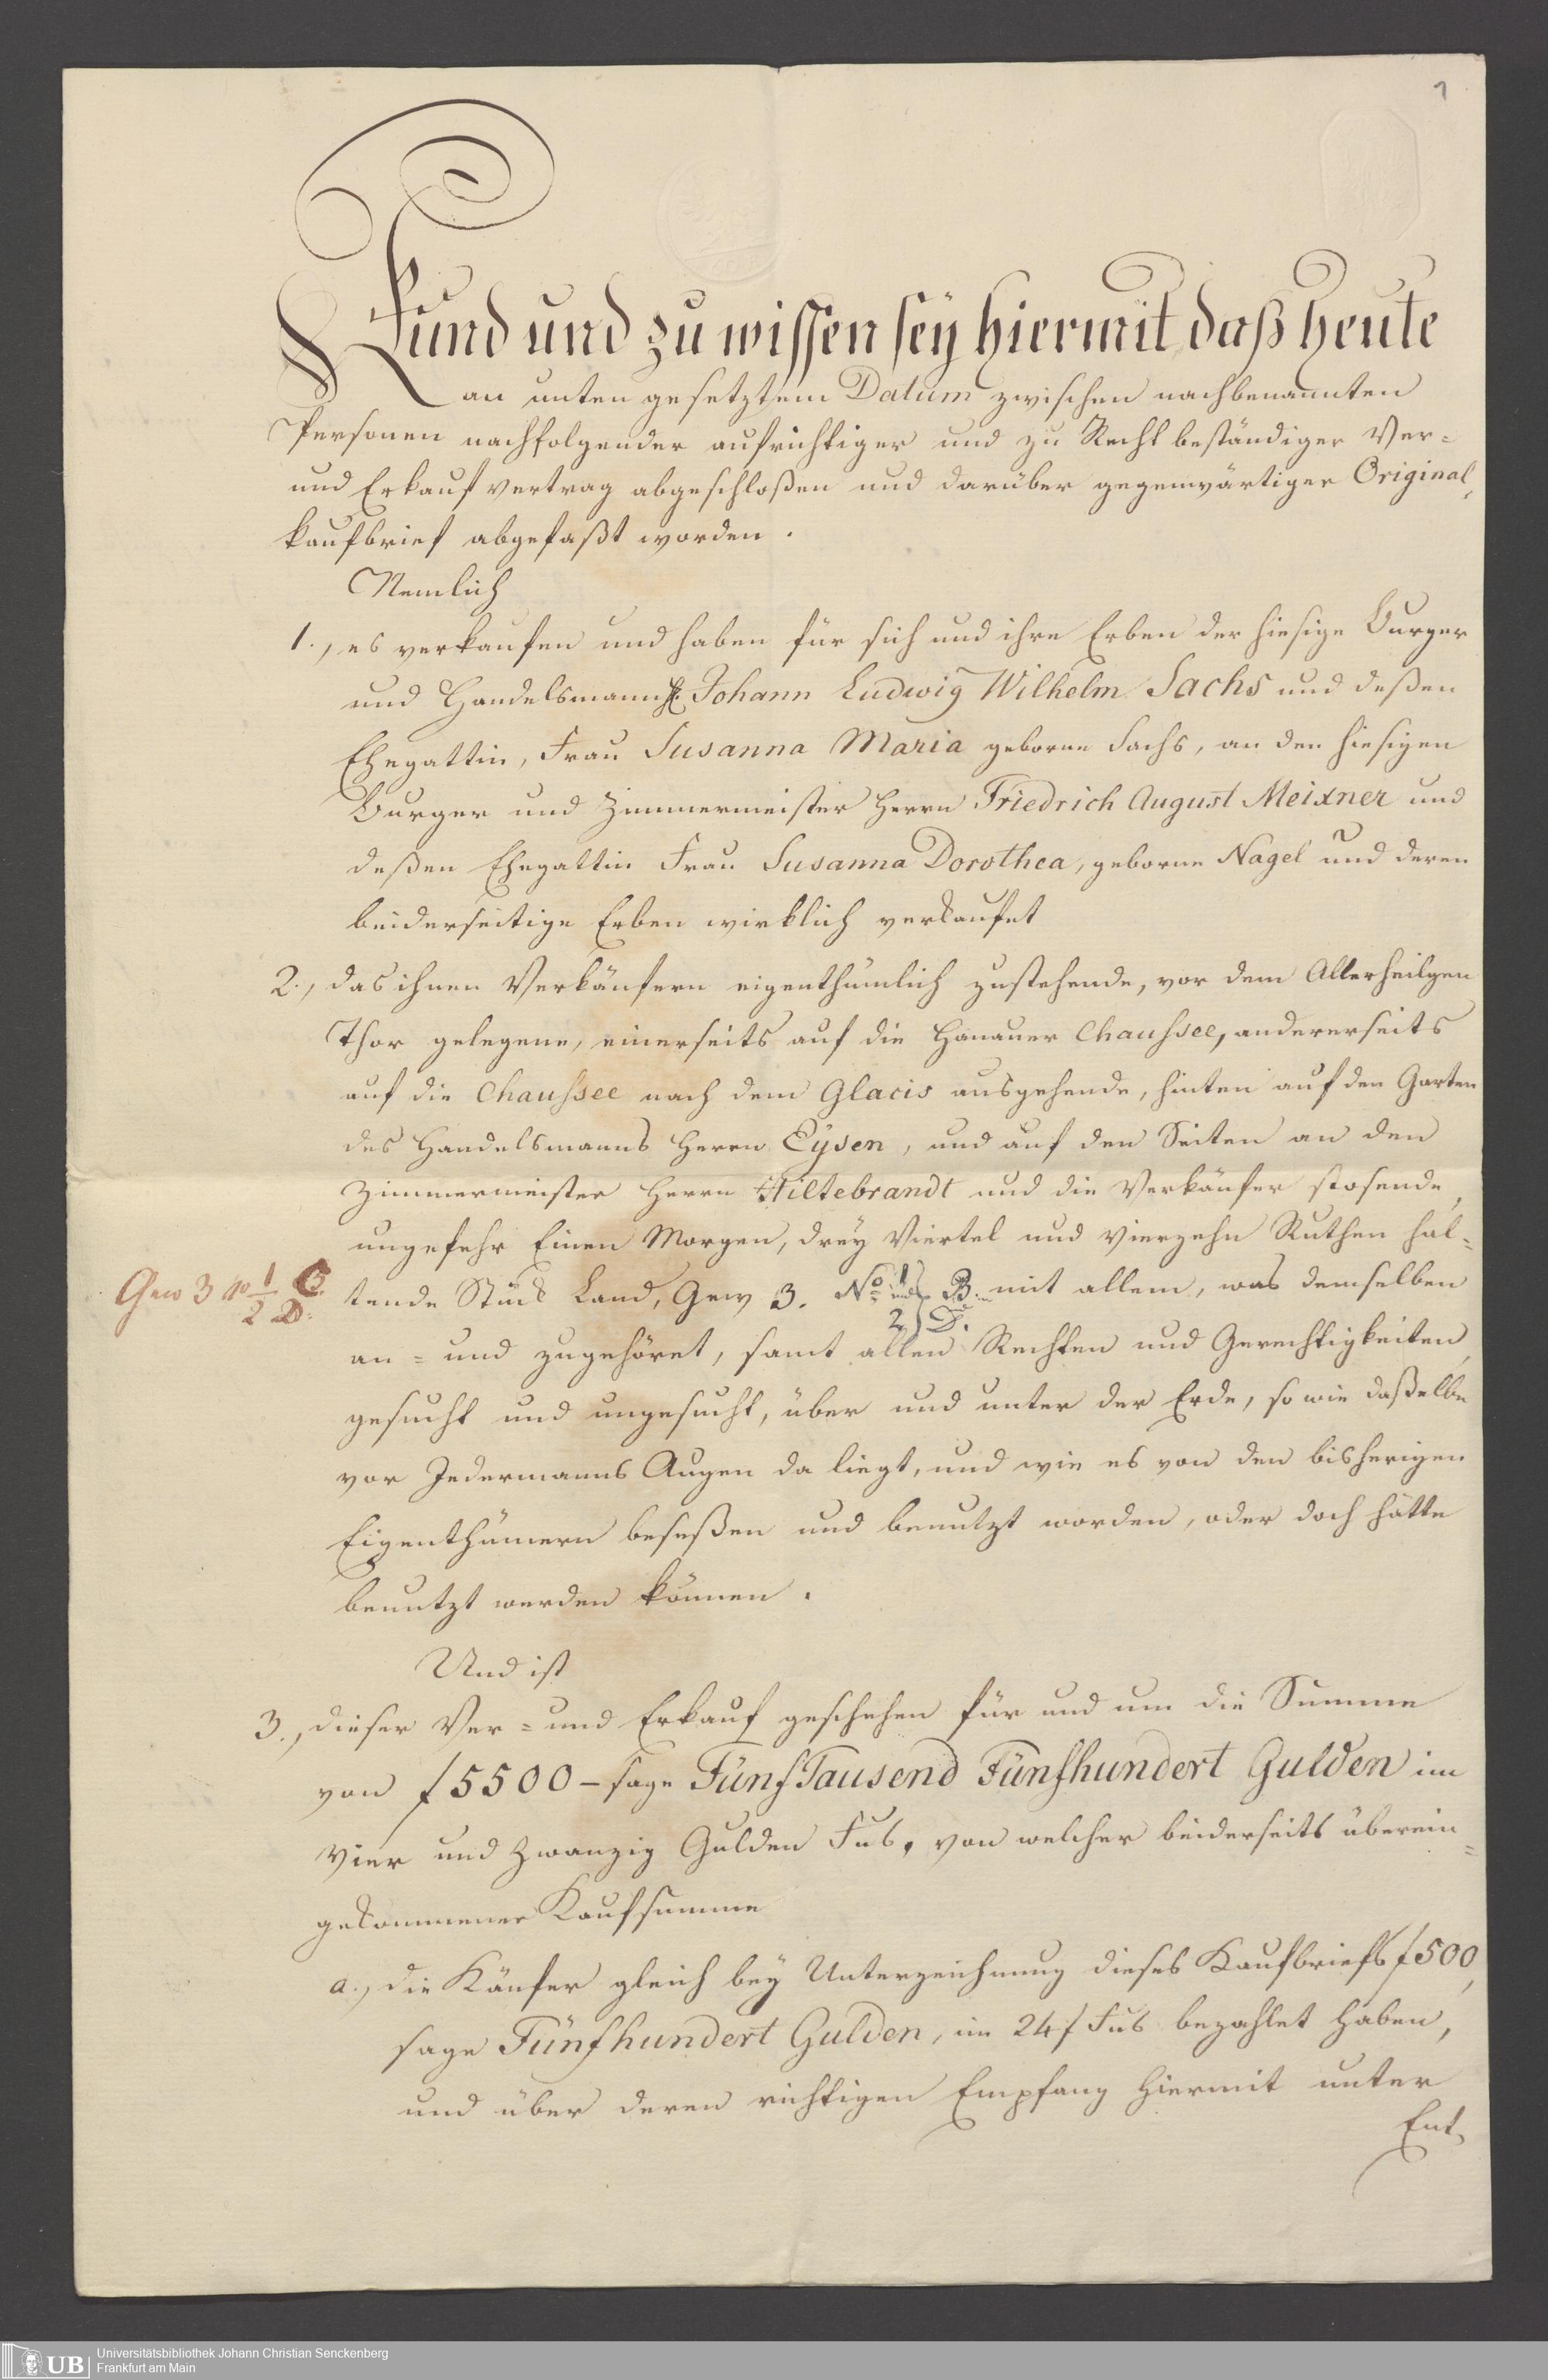 1
Kund und zu wissen seÿ hiermit daß heute
an unten gesetztem Datum zwischen nachbenannten
Personen nachfolgender aufrichtiger und zu Recht beständiger Ver=
und Erkauf vertrag abgeschloßen und darüber gegenwärtiger Original,
kaufbrief abgefaßt worden.
Nemlich
1., es verkaufen und haben für sich und ihre Erben der hiesige Burger
und Handelsmann H. Johann Ludwig Wilhelm Sachs und deßen
Ehegattin, Frau Susanna Maria geborne Sachs, an den hiesigen
Burger und Zimmermeister Herrn Friedrich August Meixner und
deßen Ehegattin Frau Susanna Dorothea, geborne Nagel und deren
beiderseitige Erben wirklich verkaufet
2., das ihnen Verkäufern eigenthümlich zustehende, vor dem Allerheilgen
Thor gelegene, einerseits auf die Hanauer Chaussee, andererseits
auf die Chaussee nach dem Glacis ausgehende, hinten auf den Garten
des Handelsmanns Herrn Eÿsen, und auf den Seiten an den
Zimmermeister Herrn Hiltebrandt und die Verkäufer stosende,
ungefehr Einen Morgen, drey Viertel und vierzehn Ruthen hal=
Gew 3 No 1/2 C. D.
tende Stück Land, Gew 3. No 1 B. mit allem, was demselben
2) D.
an= und zugehöret, samt allen Rechten und Gerechtigkeiten,
gesucht und ungesucht, über und unter der Erde, so wie daßelbe
vor Jedermanns Augen da liegt, und wie es von den bisherigen
Eigenthümern beseßen und benutzt worden, oder doch hätte
benutzt werden können.
Und ist
3., dieser Ver= und Erkauf geschehen für und um die Summe
von f 5500 – sage Fünf Tausend Fünfhundert Gulden im
Vier und Zwanzig Gulden Fus, von welcher beiderseits überein=
gekommener Kaufsumme
a., die Käufer gleich bey Unterzeichnung dieses Kaufbriefs f 500,
sage Fünfhundert Gulden, im 24 f Fus bezahlet haben,
und über deren richtigen Empfang hiermit unter
Ent,
UB Universitätsbibliothek Johann Christian Senckenberg
Frankfurt am Main